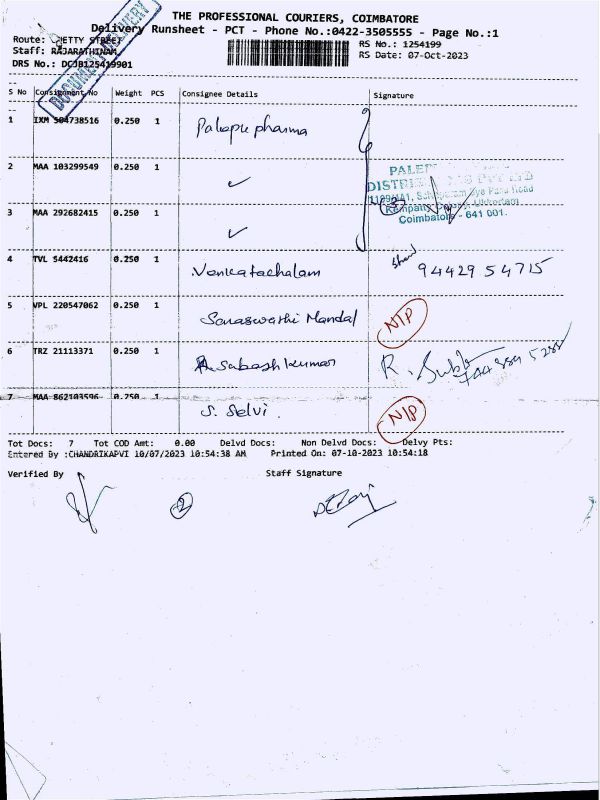 THE PROFESSIONAL COURIERS, COIMBATORE
Delivery Runsheet - PCT - Phone No.:0422-3505555 - Page No.:1
Route: CHETTY STREET
RS No.: 1254199
Staff: RAJARATHINAM
RS Date: 07-Oct-2023
DRS No.: DCJB125419901
DOCUMENT DELIVERY
S No Consignment No Weight PCS Consignee Details Signature
1 IXM 504738516 0.250 1 Palepu pharma
2 MAA 103299549 0.250 1 ✓
3 MAA 292682415 0.250 1 ✓
Coimbatore - 641 001.
4 TVL 5442416 0.250 1 Venkatachalam 94429 54715
5 VPL 220547062 0.250 1 Saraswathi Mandal N/P
6 TRZ 21113371 0.250 1 R. Subash kumar R. Subb
7 MAA 862103596 0.250 1 S. Selvi. N/P
Tot Docs: 7 Tot COD Amt: 0.00 Delvd Docs: Non Delvd Docs: Delvy Pts:
Entered By :CHANDRIKAPVI 10/07/2023 10:54:38 AM Printed On: 07-10-2023 10:54:18
Verified By Staff Signature
2